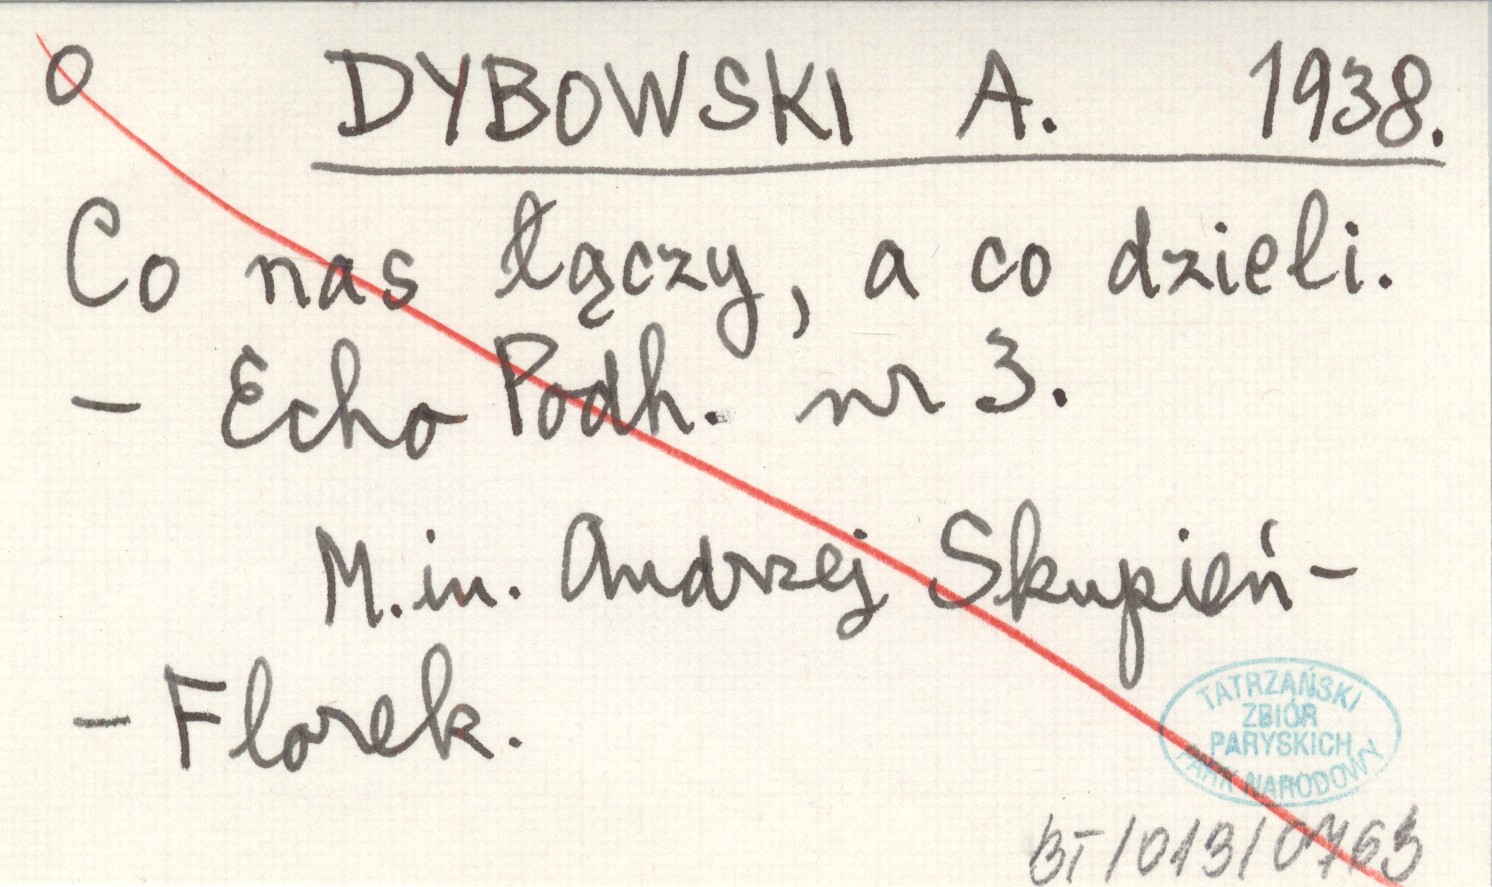 O DYBOWSKI A. 1938.
Co nas łączy, a co dzieli.
- Echo Podh. nr 3.
M.in. Andrzej Skupień-
- Florek.
TATRZAŃSKI
ZBIÓR
PARYSKICH
PARK NARODOWY
BT/013/0763